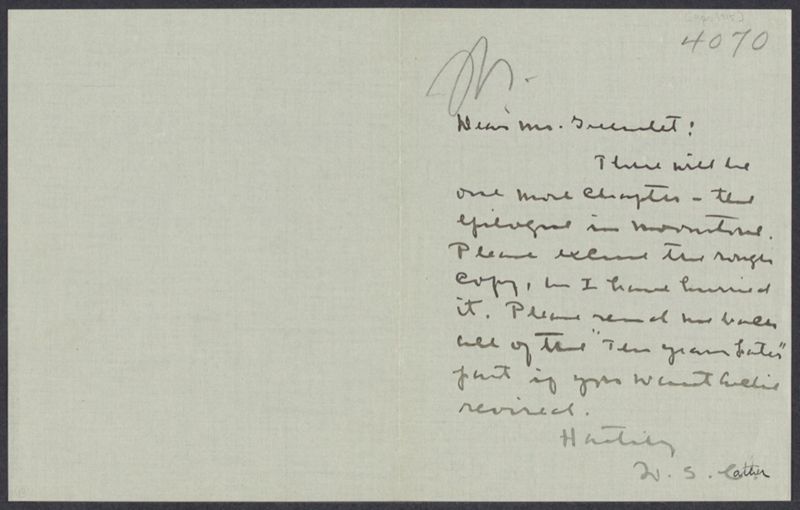 4070
Dear Mr. Greenslet:
There will be
one more chapter – the
epilogue in Moonstone.
Please excuse the rough
copy, as I have hurried
it. Please send me back
all of the "Ten years Later"
part if you want
revised.
Hastily
W. S. Cather